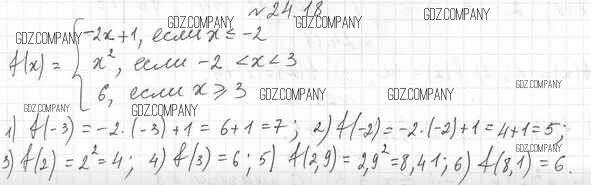 №24.18
GDZ.COMPANY GDZ.COMPANY GDZ.COMPANY
GDZ.COMPANY
-2x+1, если x ≤ -2
f(x) = { x², если -2 < x < 3
GDZ.COMPANY
6, если x ⩾ 3 GDZ.COMPANY GDZ.COMPANY
GDZ.COMPANY GDZ.COMPANY
1) f(-3) = -2·(-3)+1 = 6+1 = 7; 2) f(-2) = -2·(-2)+1 = 4+1 = 5;
GDZ.COMPANY
3) f(2) = 2² = 4; 4) f(3) = 6; 5) f(2,9) = 2,9² = 8,41; 6) f(8,1) = 6.